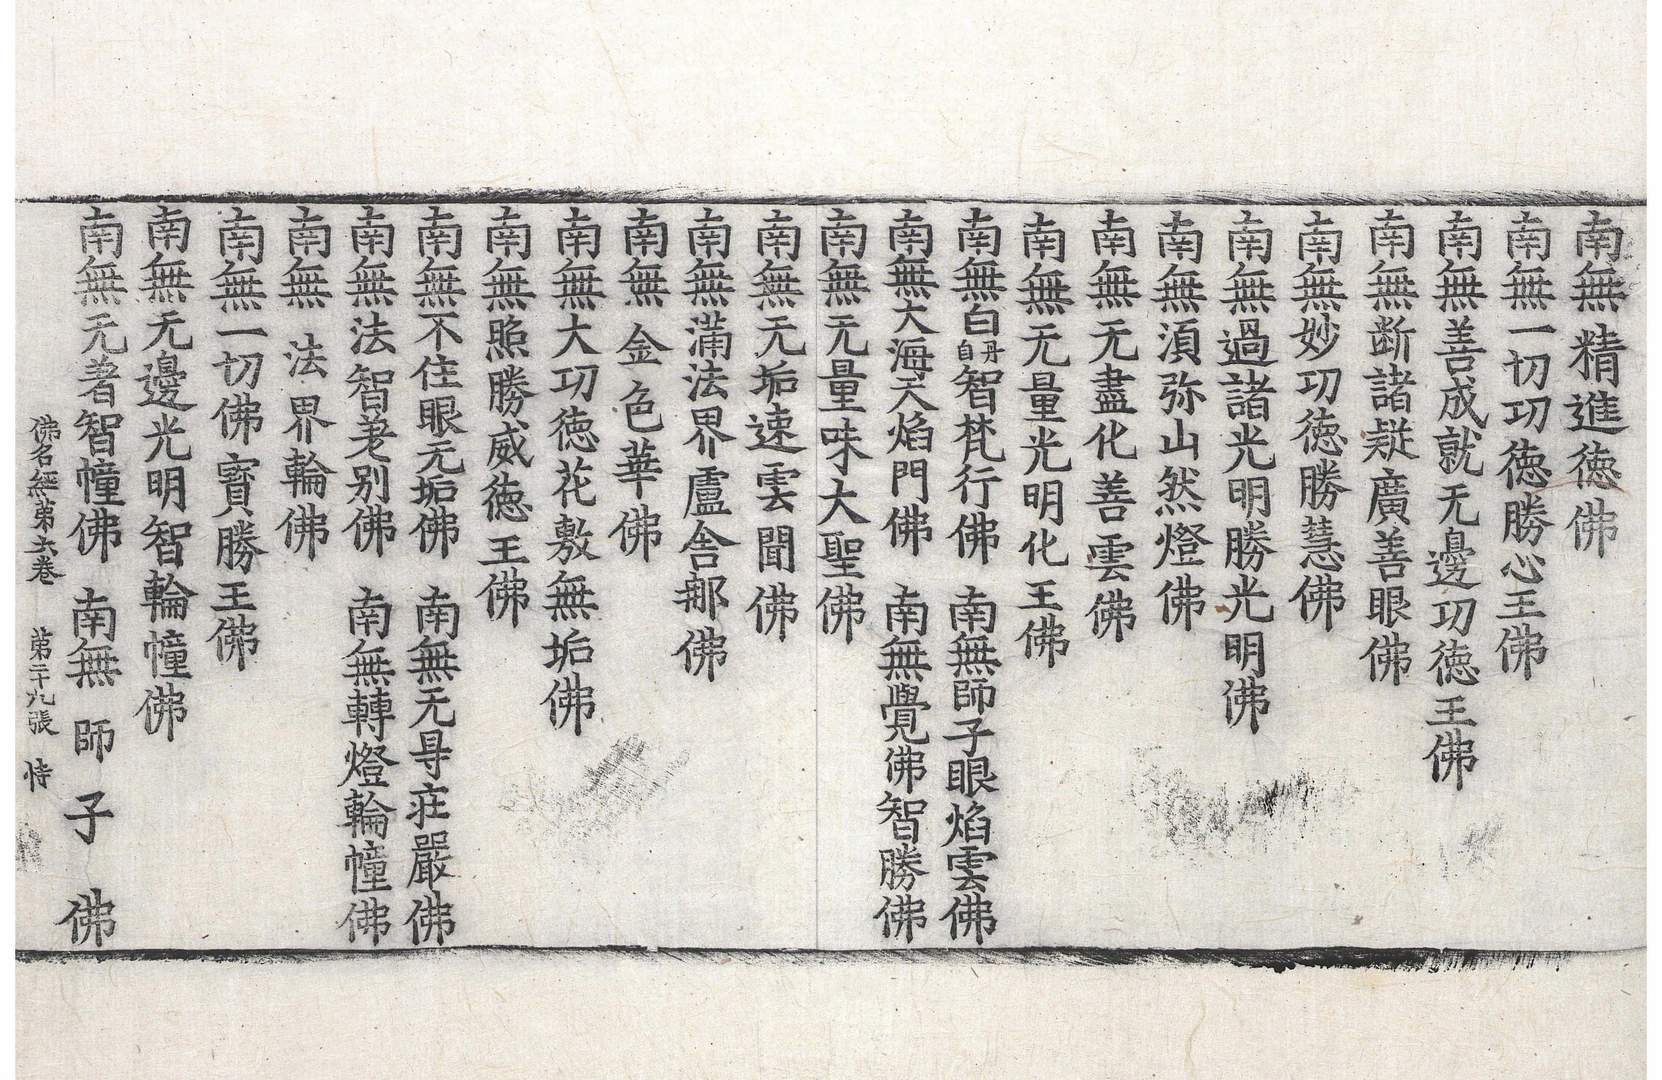 南無精進德佛
南無一切功德勝心王佛
南無善成就无邊功德王佛
南無断諸疑廣善眼佛
南無妙功德勝慧佛
南無過諸光明勝光明佛
南無須弥山然燈佛
南無无盡化善雲佛
南無无量光明化王佛
南無白毋自智梵行佛 南無師子眼焰雲佛
南無大海天焰門佛 南無覺佛智勝佛
南無无量味大聖佛
南無无垢速雲聞佛
南無滿法界盧舍那佛
南無金色華佛
南無大功德花敷無垢佛
南無照勝威德王佛
南無不住眼无垢佛 南無无㝵莊嚴佛
南無法智差別佛 南無轉燈輪幢佛
南無法界輪佛
南無一切佛寶勝王佛
南無无邊光明智輪幢佛
南無无著智幢佛 南無師子佛
佛名經第六卷 第二十九張 恃